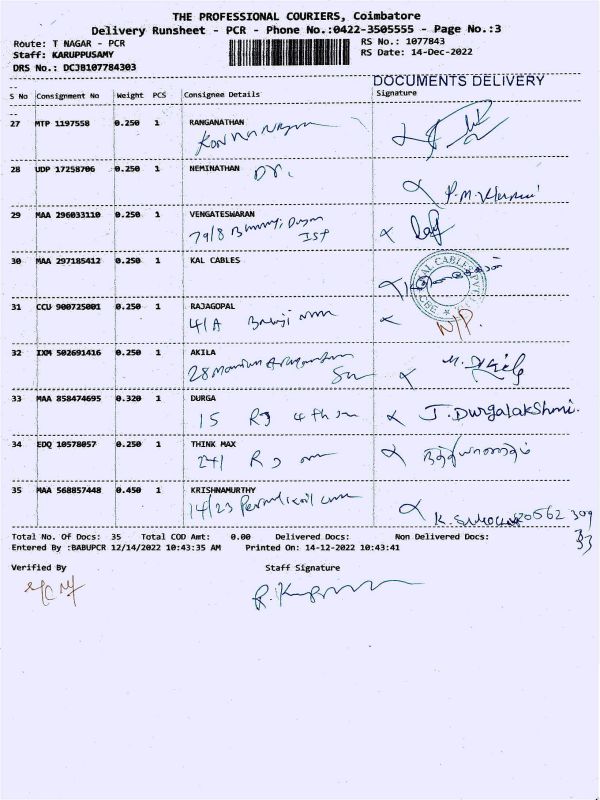 THE PROFESSIONAL COURIERS, Coimbatore
Delivery Runsheet - PCR - Phone No.:0422-3505555 - Page No.:3
Route: T NAGAR - PCR
RS No.: 1077843
Staff: KARUPPUSAMY
RS Date: 14-Dec-2022
DRS No.: DCJB107784303
DOCUMENTS DELIVERY
S No Consignment No Weight PCS Consignee Details Signature
27 MTP 1197558 0.250 1 RANGANATHAN
28 UDP 17258706 0.250 1 NEMINATHAN
29 MAA 296033110 0.250 1 VENGATESWARAN
79/8
IST
30 MAA 297185412 0.250 1 KAL CABLES
31 CCU 900725001 0.250 1 RAJAGOPAL
41A
N/P.
32 IXM 502691416 0.250 1 AKILA
28
33 MAA 858474695 0.320 1 DURGA
15 4th J. Durgalakshmi.
34 EDQ 10578057 0.250 1 THINK MAX
241
35 MAA 568857448 0.450 1 KRISHNAMURTHY
14/23
Total No. Of Docs: 35 Total COD Amt: 0.00 Delivered Docs: Non Delivered Docs:
33
Entered By :BABUPCR 12/14/2022 10:43:35 AM Printed On: 14-12-2022 10:43:41
Verified By Staff Signature